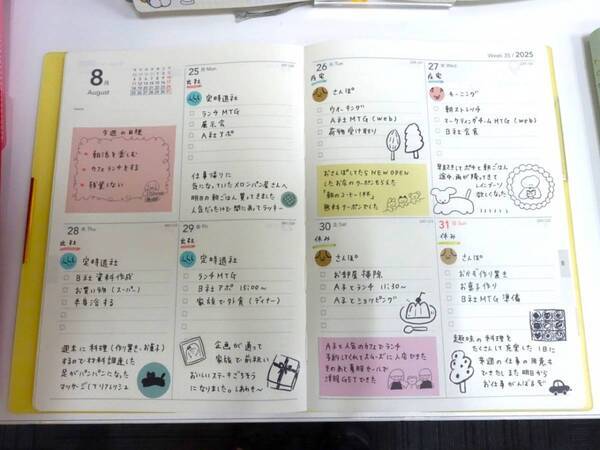 8月
August
今週の目標
・朝活を楽しむ
・カフェランチをする
・残業しない
25 月 Mon
出社
定時退社
ランチMTG
展示会
A社アポ
仕事帰りに
気になっていたメロンパン屋さんへ
明日の朝ごはん買ってきました
人気だったけど間に合ってラッキー
Week 35 / 2025
26 火 Tue
在宅
さんぽ
ウォーキング
A社MTG(web)
荷物受け取り
おさんぽしてたらNEW OPEN
したお店のクーポンもらえた
「朝のコーヒー1杯」
無料クーポンでした
27 水 Wed
在宅
モーニング
朝ストレッチ
マーケティングチームMTG(web)
B社会食
早起きしてポチと朝ごはん
途中、雨が降ってきて
レインブーツ
欲しくなった
28 木 Thu
出社
定時退社
B社資料作成
お買い物(スーパー)
半身浴する
週末に料理(作り置き、お菓子)
するので材料調達した
足がパンパンになった
マッサージしてリフレッシュ
29 金 Fri
出社
定時退社
ランチMTG
B社アポ 15:00〜
家族で外食(ディナー)
企画が通って
家族で前祝い
おいしいステーキごちそう
になりました。しあわせ〜
30 土 Sat
休み
さんぽ
お部屋掃除
A子とランチ 11:30〜
A子とショッピング
A子と人気のカフェでランチ
予約してくれてスムーズに入店できた
そのあと夏服セールで
洋服GETできた
31 日 Sun
休み
さんぽ
おかず作り置き
お菓子作り
B社MTG 準備
趣味の料理を
たくさんして充実した1日に
来週の仕事の用意も
できたしまた明日から
お仕事がんばるぞ
8